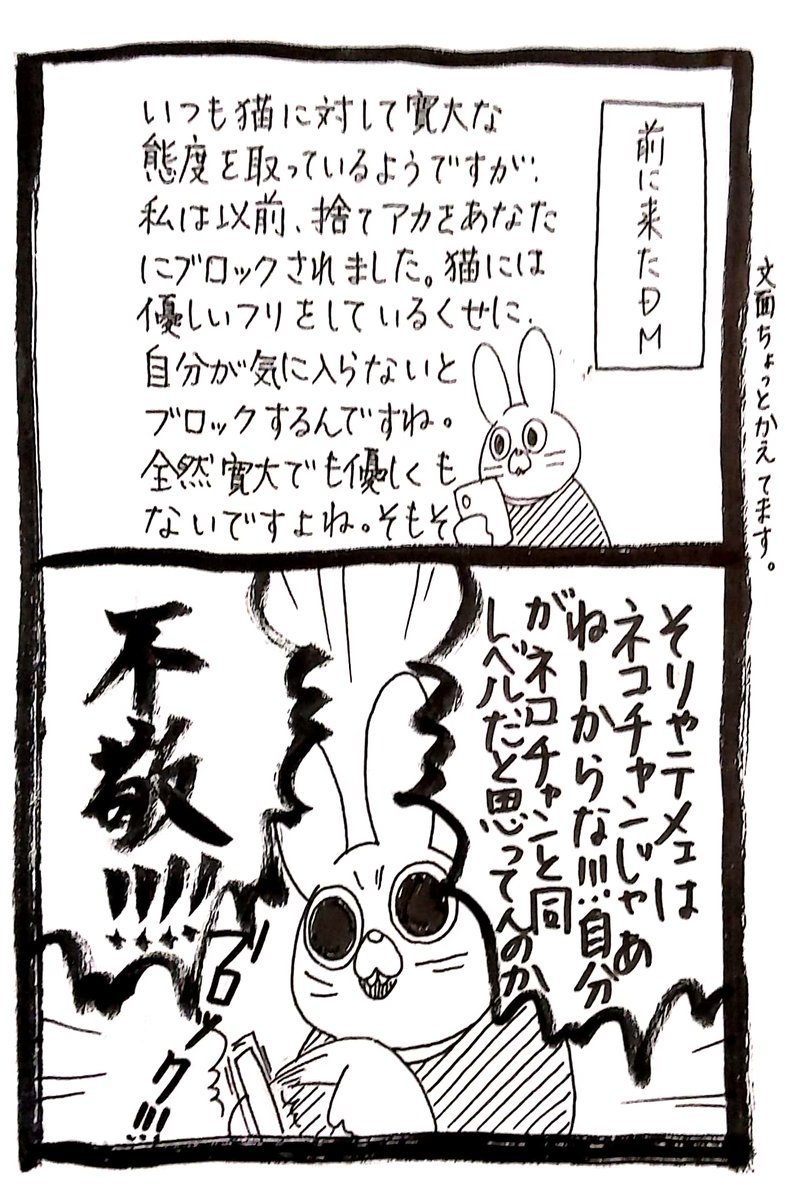 前に来たDM
いつも猫に対して寛大な
態度を取っているようですが、
私は以前、捨てアカをあなた
にブロックされました。猫には
優しいフリをしているくせに、
自分が気に入らないと
ブロックするんですね。
全然寛大でも優しくも
ないですよね。そもそ
文面ちょっとかえてます。
そりゃテメェは
ネコチャンじゃあ
ねーからな!!!自分
がネコチャンと同
レベルだと思ってんのか
不敬!!!!
ブロック!!!